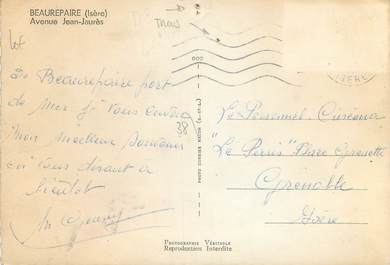 BEAUREPAIRE (Isère)
Avenue Jean-Jaurès
De Beaurepaire port
de Mer j' vous envoie
mon meilleur Souvenir
en vous disant a
bientot
38
Le Personnel
"Le Paris" Place Grenette
Grenoble
Isère
ISERE
PHOTOGRAPHIE VÉRITABLE
Reproduction Interdite